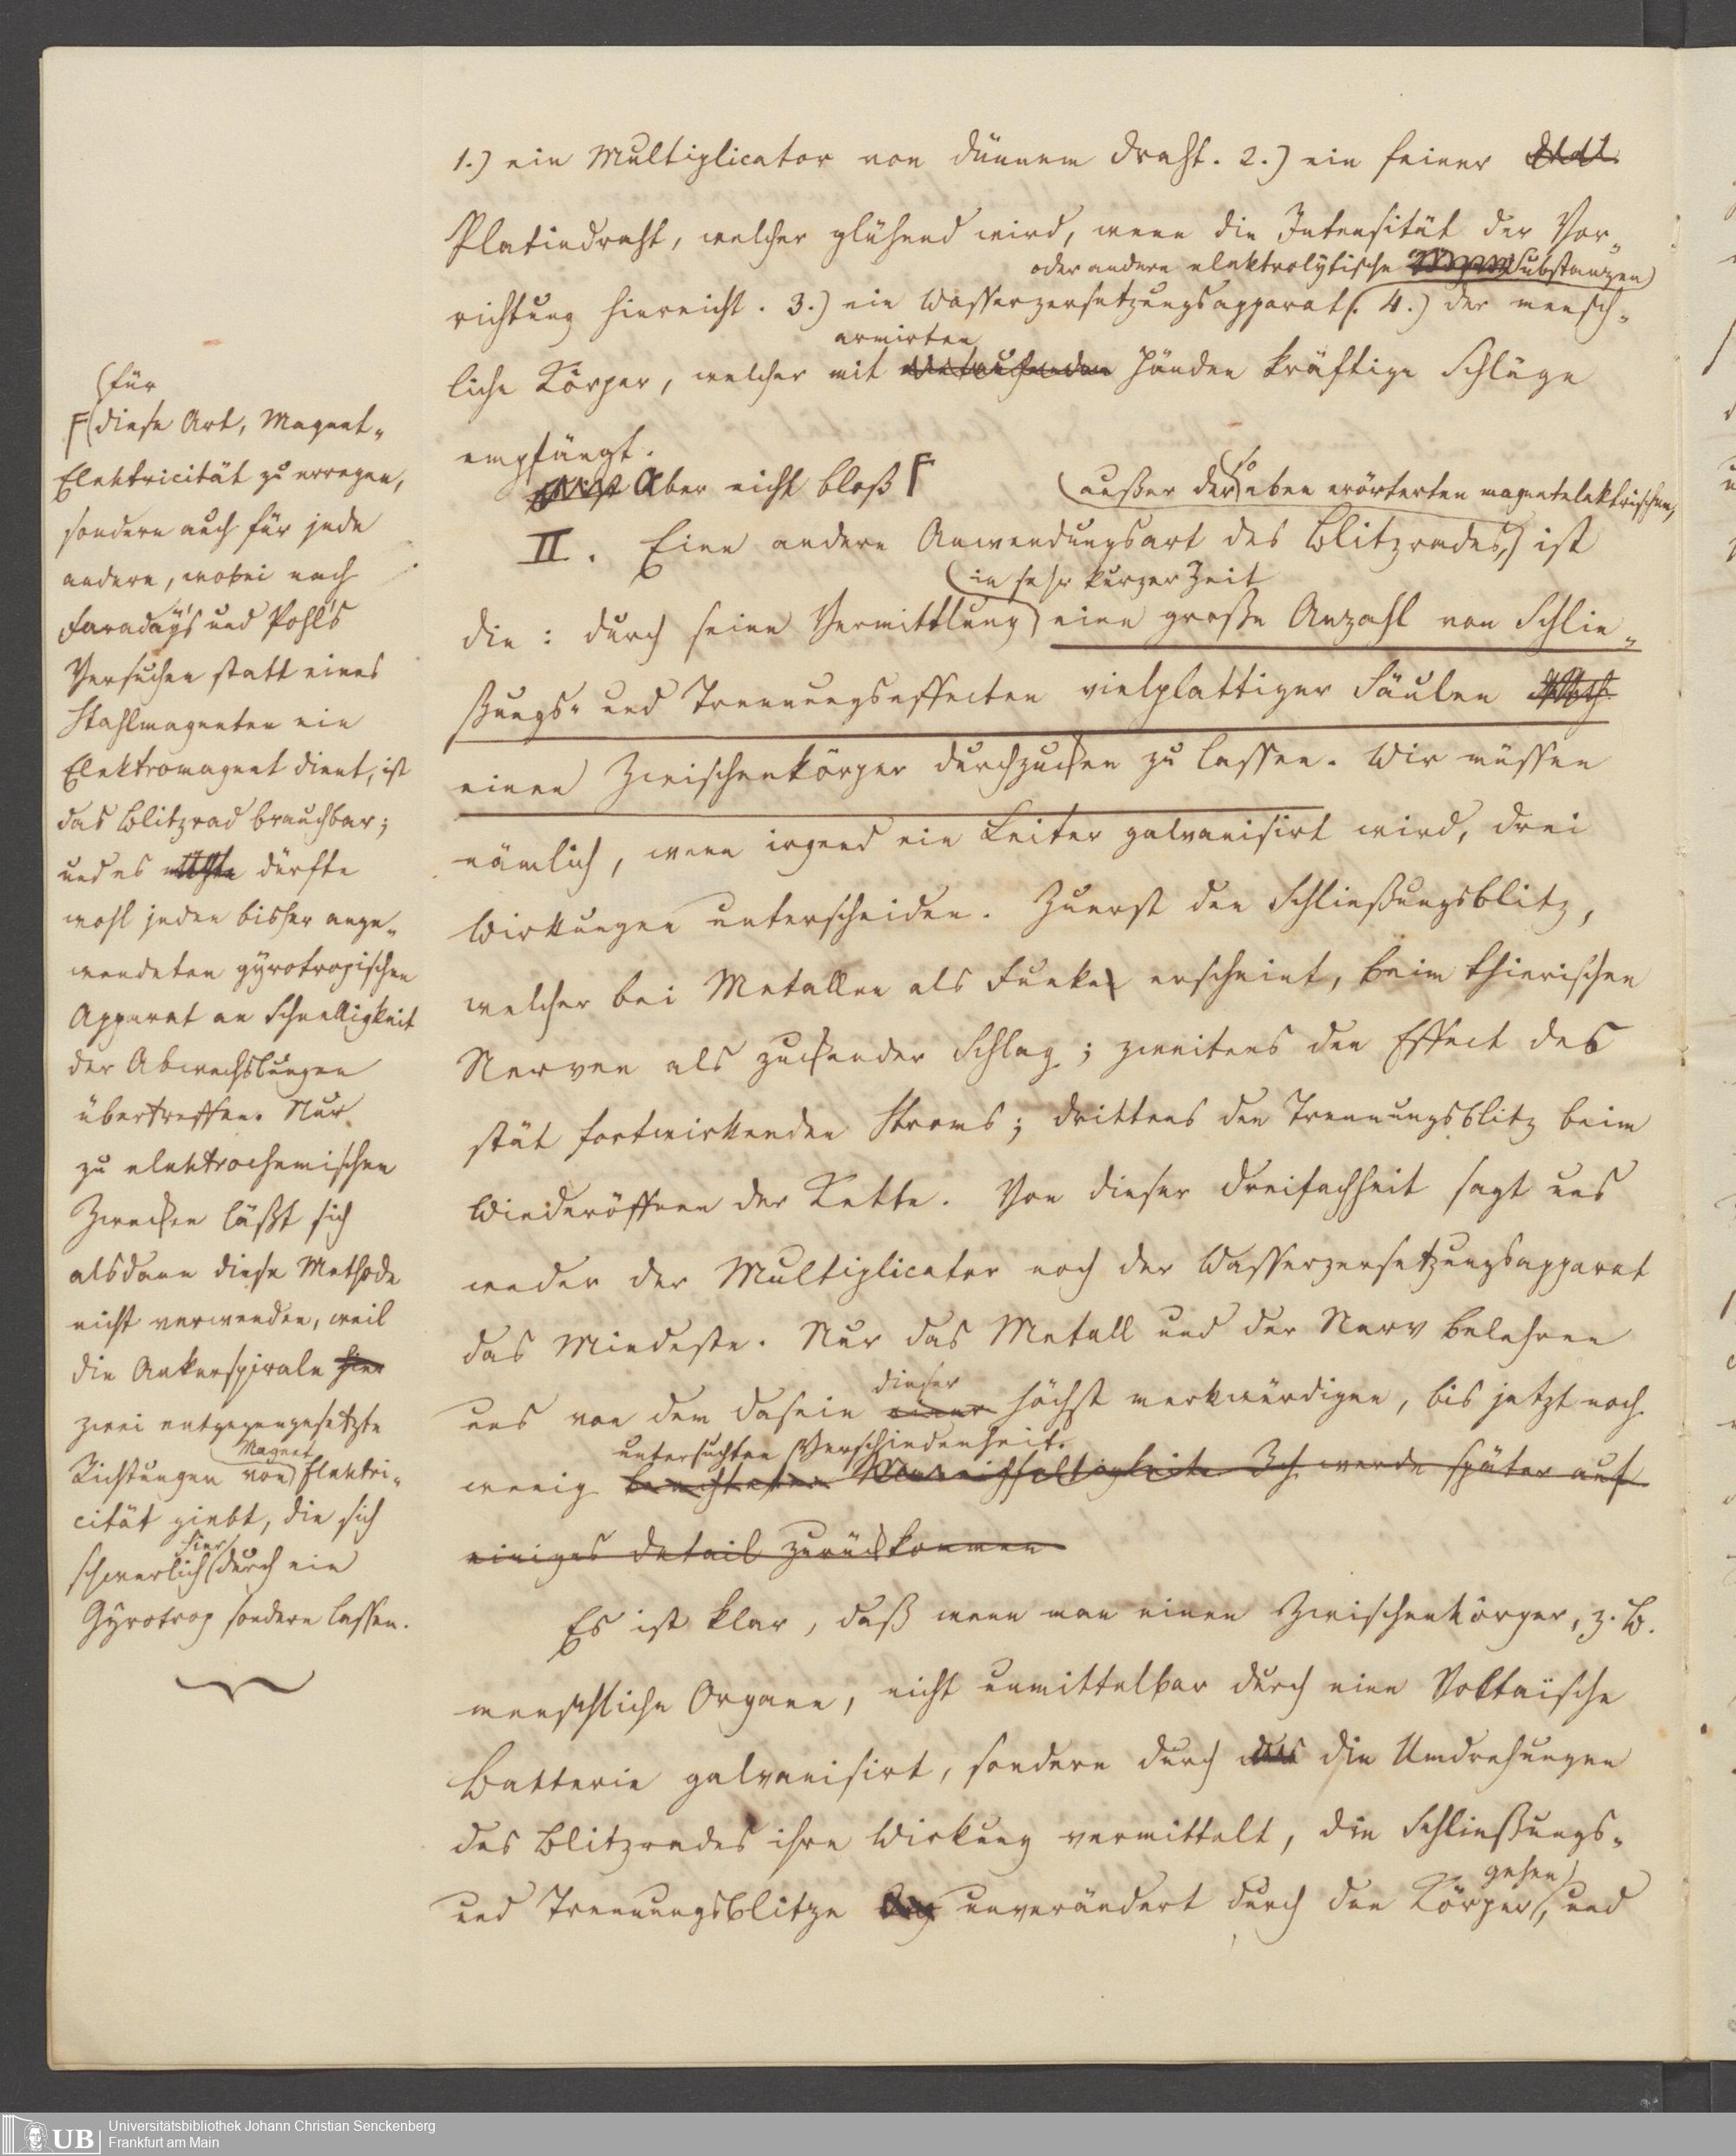 1.) ein Multiplicator von dünnem Draht. 2.) ein feiner
Platindraht, welcher glühend wird, wenn die Intensität der Vor-
oder andere elektrolytische Substanzen
richtung hinreicht. 3.) ein Wasserzersetzungsapparat. 4.) der mensch-
armirten
liche Körper, welcher mit Händen kräftige Schläge
empfängt.
Aber nicht bloß F
(außer der so eben erörterten magnetelektrischen,)
II. Eine andere Anwendungsart des Blitzrades, ist
in sehr kurzer Zeit
die: durch seine Vermittlung eine große Anzahl von Schlie-
ßungs- und Trennungseffecten vielplattiger Säulen
einen Zwischenkörper durchzucken zu lassen. Wir müssen
nämlich, wenn irgend ein Leiter galvanisirt wird, drei
Wirkungen unterscheiden. Zuerst den Schließungsblitz,
welcher bei Metallen als Funke erscheint, beim thierischen
Nerven als zuckender Schlag; zweitens den Effect des
stät fortwirkenden Stroms; drittens den Trennungsblitz beim
Wiederöffnen der Kette. Von dieser Dreifachheit sagt uns
weder der Multiplicator noch der Wasserzersetzungsapparat
das Mindeste. Nur das Metall und der Nerv belehren
dieser
uns von dem Dasein einer höchst merkwürdigen, bis jetzt noch
untersuchten Verschiedenheit.
wenig beachteten Mannichfaltigkeit. Ich werde später auf
einiges Detail zurückkommen
Es ist klar, daß wenn man einen Zwischenkörper, z. B.
menschliche Organe, nicht unmittelbar durch eine Voltaïsche
Batterie galvanisirt, sondern durch das die Umdrehungen
des Blitzrades ihre Wirkung vermittelt, die Schließungs-
gehen
und Trennungsblitze unverändert durch den Körper, und
für
F diese Art, Magnet-
Elektricität zu erregen,
sondern auch für jede
andere, wobei nach
Faraday's und Pohl's
Versuchen statt eines
Stahlmagneten ein
Elektromagnet dient, ist
das Blitzrad brauchbar;
und es dürfte
wohl jeden bisher ange-
wendeten gyrotropischen
Apparat an Schnelligkeit
der Abwechslungen
übertreffen. Nur
zu elektrochemischen
Zwecken läßt sich
alsdann diese Methode
nicht verwenden, weil
die Ankerspirale hier
zwei entgegengesetzte
Magnet
Richtungen von Elektri-
cität giebt, die sich
hier
schwerlich durch ein
Gyrotrop sondern lassen.
UB Universitätsbibliothek Johann Christian Senckenberg
Frankfurt am Main